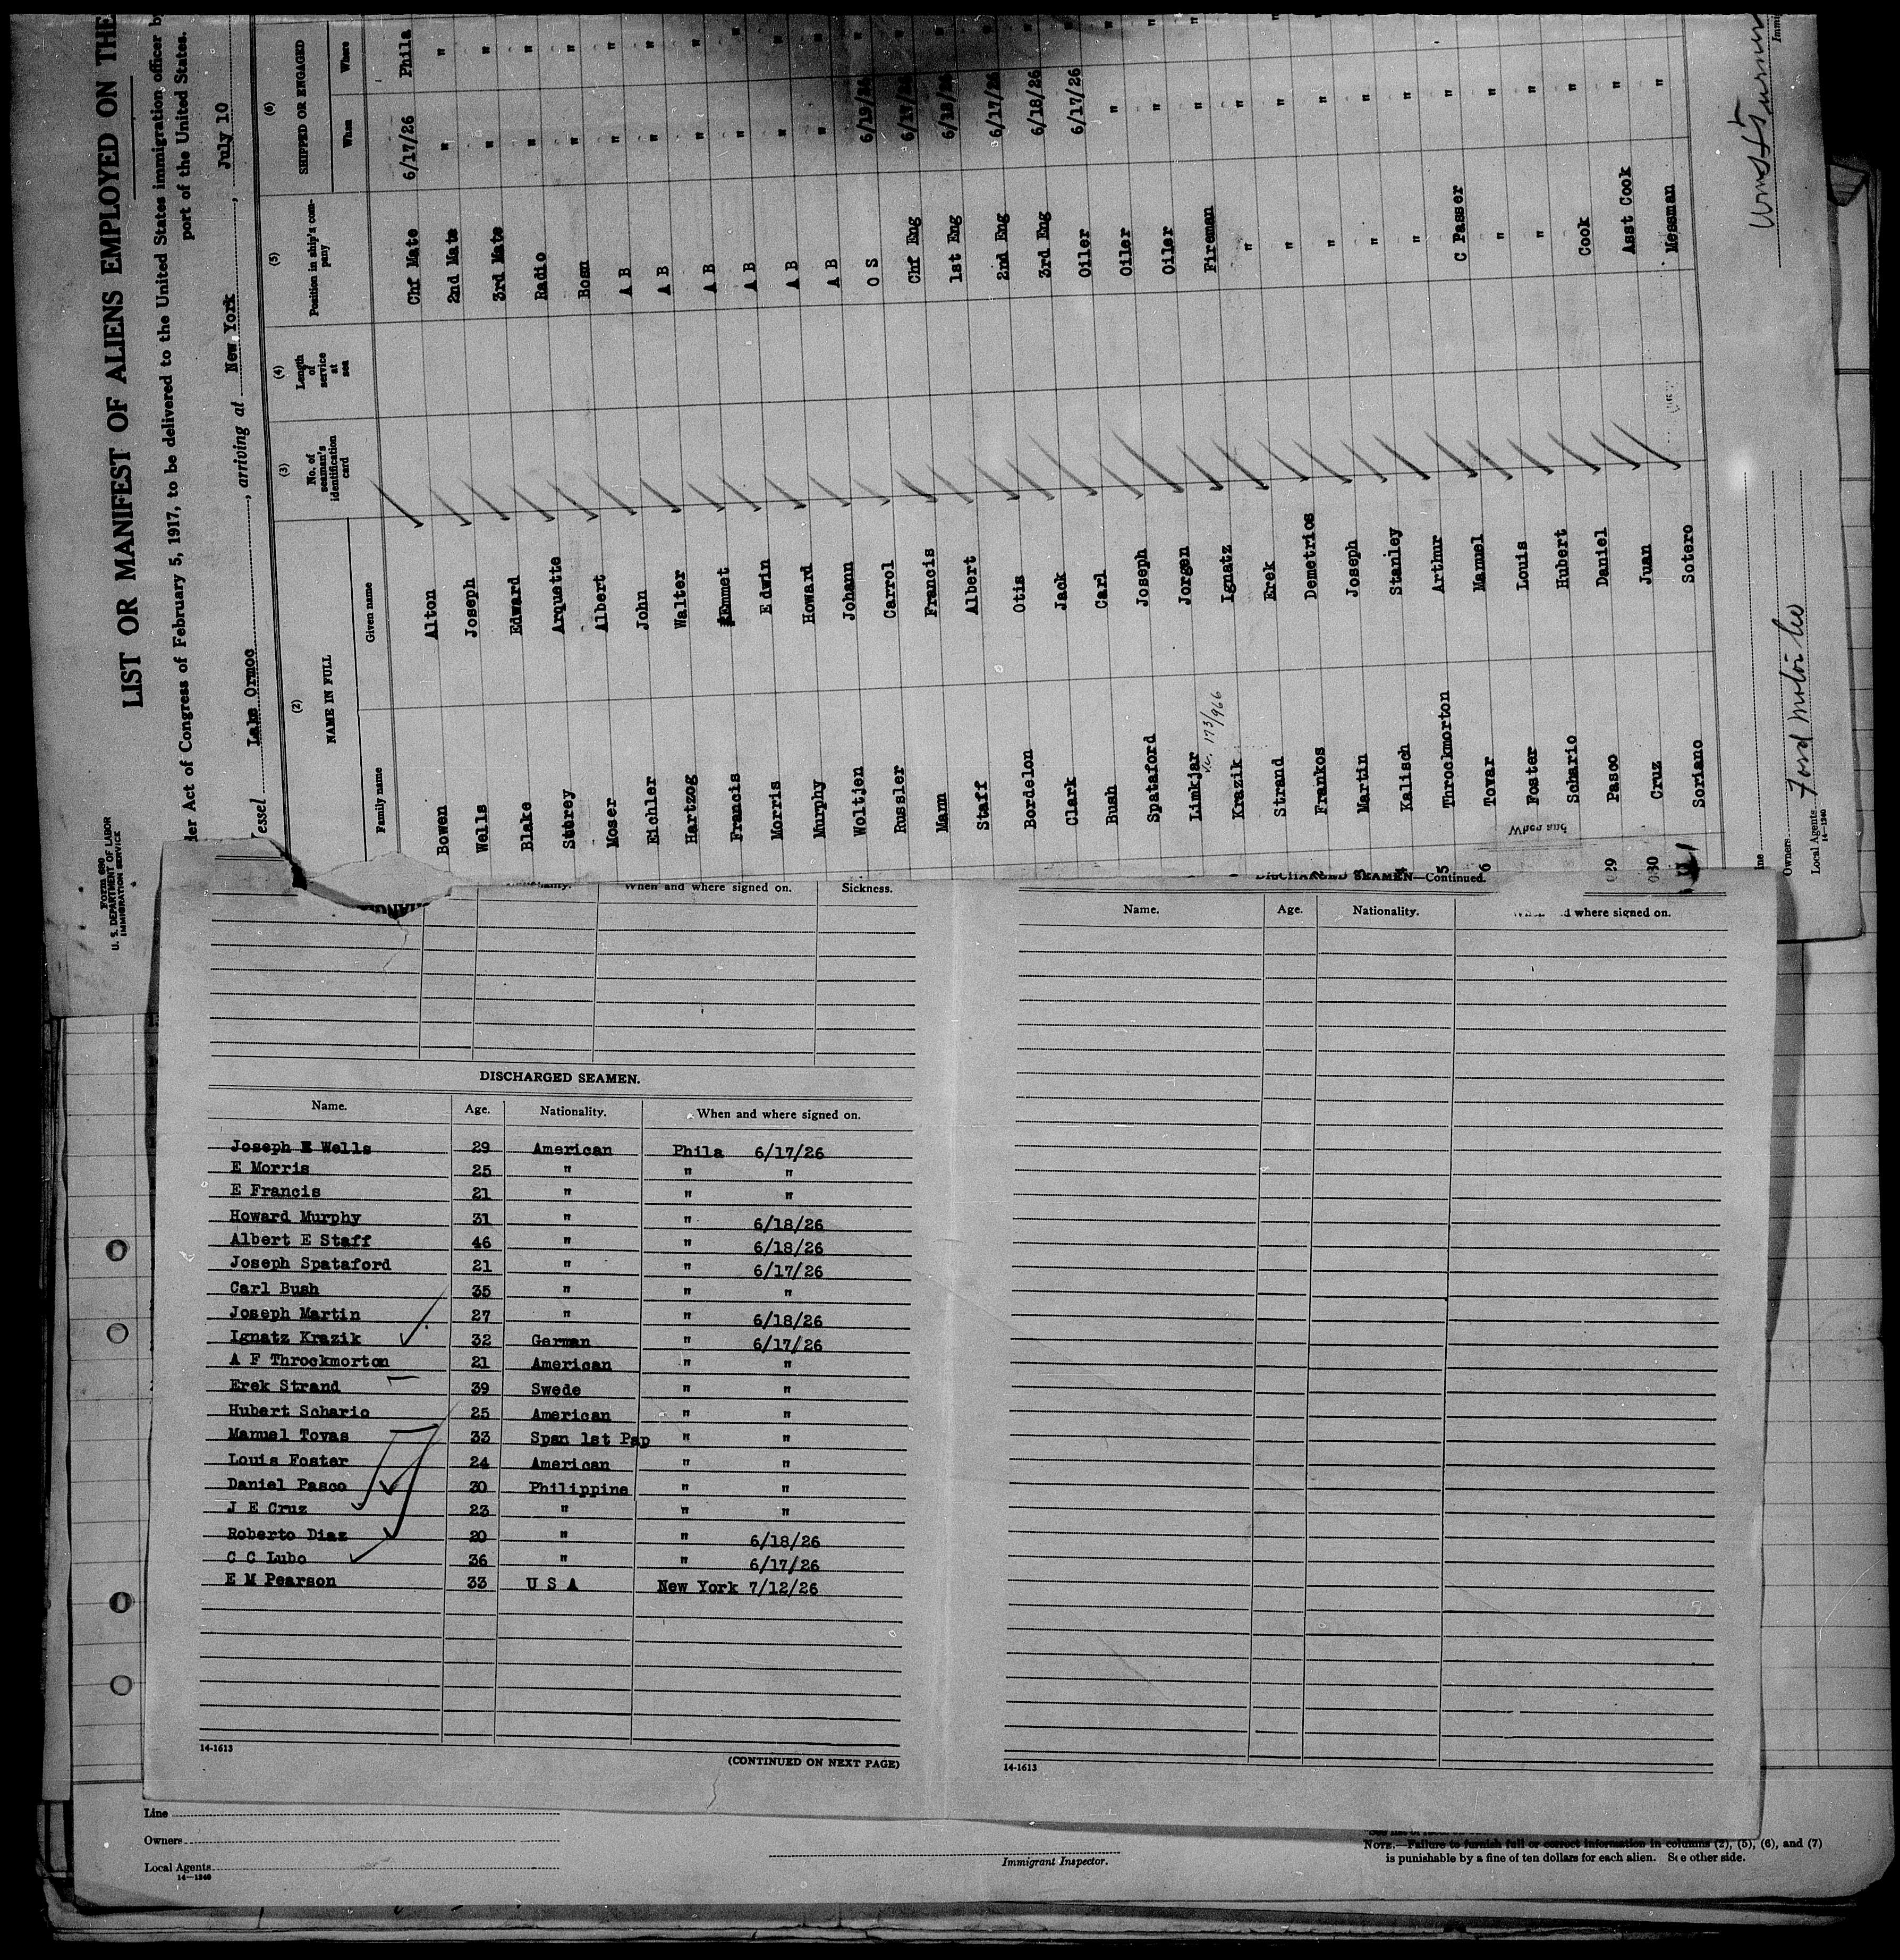 Form 680
U. S. DEPARTMENT OF LABOR
IMMIGRATION SERVICE
LIST OR MANIFEST OF ALIENS EMPLOYED ON THE
der Act of Congress of February 5, 1917, to be delivered to the United States immigration officer b
port of the United States.
essel Lake Ormoc, arriving at New York, July 10
(2) (3) (4) (5) (6)
NAME IN FULL No. of seaman's identification card Length of service at sea Position in ship's company SHIPPED OR ENGAGED
Family name Given name When Where
Bowen Alton Chf Mate 6/17/26 Phila
Wells Joseph 2nd Mate " "
Blake Edward 3rd Mate " "
Storey Arquette Radio " "
Moser Albert Bosn " "
Eichler John A B " "
Hartzog Walter A B " "
Francis Emmet A B " "
Morris Edwin A B " "
Murphy Howard A B " "
Woltjen Johann A B " "
Russler Carrol O S 6/19/26 "
Mann Francis Chf Eng 6/17/26 "
Staff Albert 1st Eng 6/18/26 "
Bordelon Otis 2nd Eng 6/17/26 "
Clark Jack 3rd Eng 6/18/26 "
Bush Carl Oiler 6/17/26 "
Spataford Joseph Oiler " "
Limkjar Jorgen Oiler " "
173/966
Krazik Ignatz Fireman " "
Strand Erek " " "
Frankos Demetrios " " "
Martin Joseph " " "
Kalisch Stanley " " "
5 Throckmorton Arthur " "
6 Tovar Manuel C Passer "
Foster Louis " "
Schario Hubert " "
29 Pasco Daniel Cook "
30 Cruz Juan Asst Cook "
Soriano Sotero Messman "
When and
ne
Owners Ford Motor Co
Local Agents
14—1240
Immi
When and where signed on. Sickness.
DISCHARGED SEAMEN.
Name. Age. Nationality. When and where signed on.
Joseph E Wells 29 American Phila 6/17/26
E Morris 25 " " "
E Francis 21 " " "
Howard Murphy 31 " " 6/18/26
Albert E Staff 46 " " 6/18/26
Joseph Spataford 21 " " 6/17/26
Carl Bush 35 " " "
Joseph Martin 27 " " 6/18/26
Ignatz Krazik 32 German " 6/17/26
A F Throckmorton 21 American " "
Erek Strand 39 Swede " "
Hubert Schario 25 American " "
Manuel Tovas 33 Span 1st Pap " "
Louis Foster 24 American " "
Daniel Pasco 30 Philippine " "
J E Cruz 23 " " "
Roberto Diaz 20 " " 6/18/26
C C Lubo 36 " " 6/17/26
E M Pearson 33 U S A New York 7/12/26
14-1613
(CONTINUED ON NEXT PAGE)
DISCHARGED SEAMEN—Continued.
Name. Age. Nationality. where signed on.
14-1613
Line
Owners
Local Agents
14—1240
Immigrant Inspector.
NOTE.—Failure to furnish full or correct information in columns (2), (5), (6), and (7)
is punishable by a fine of ten dollars for each alien. See other side.